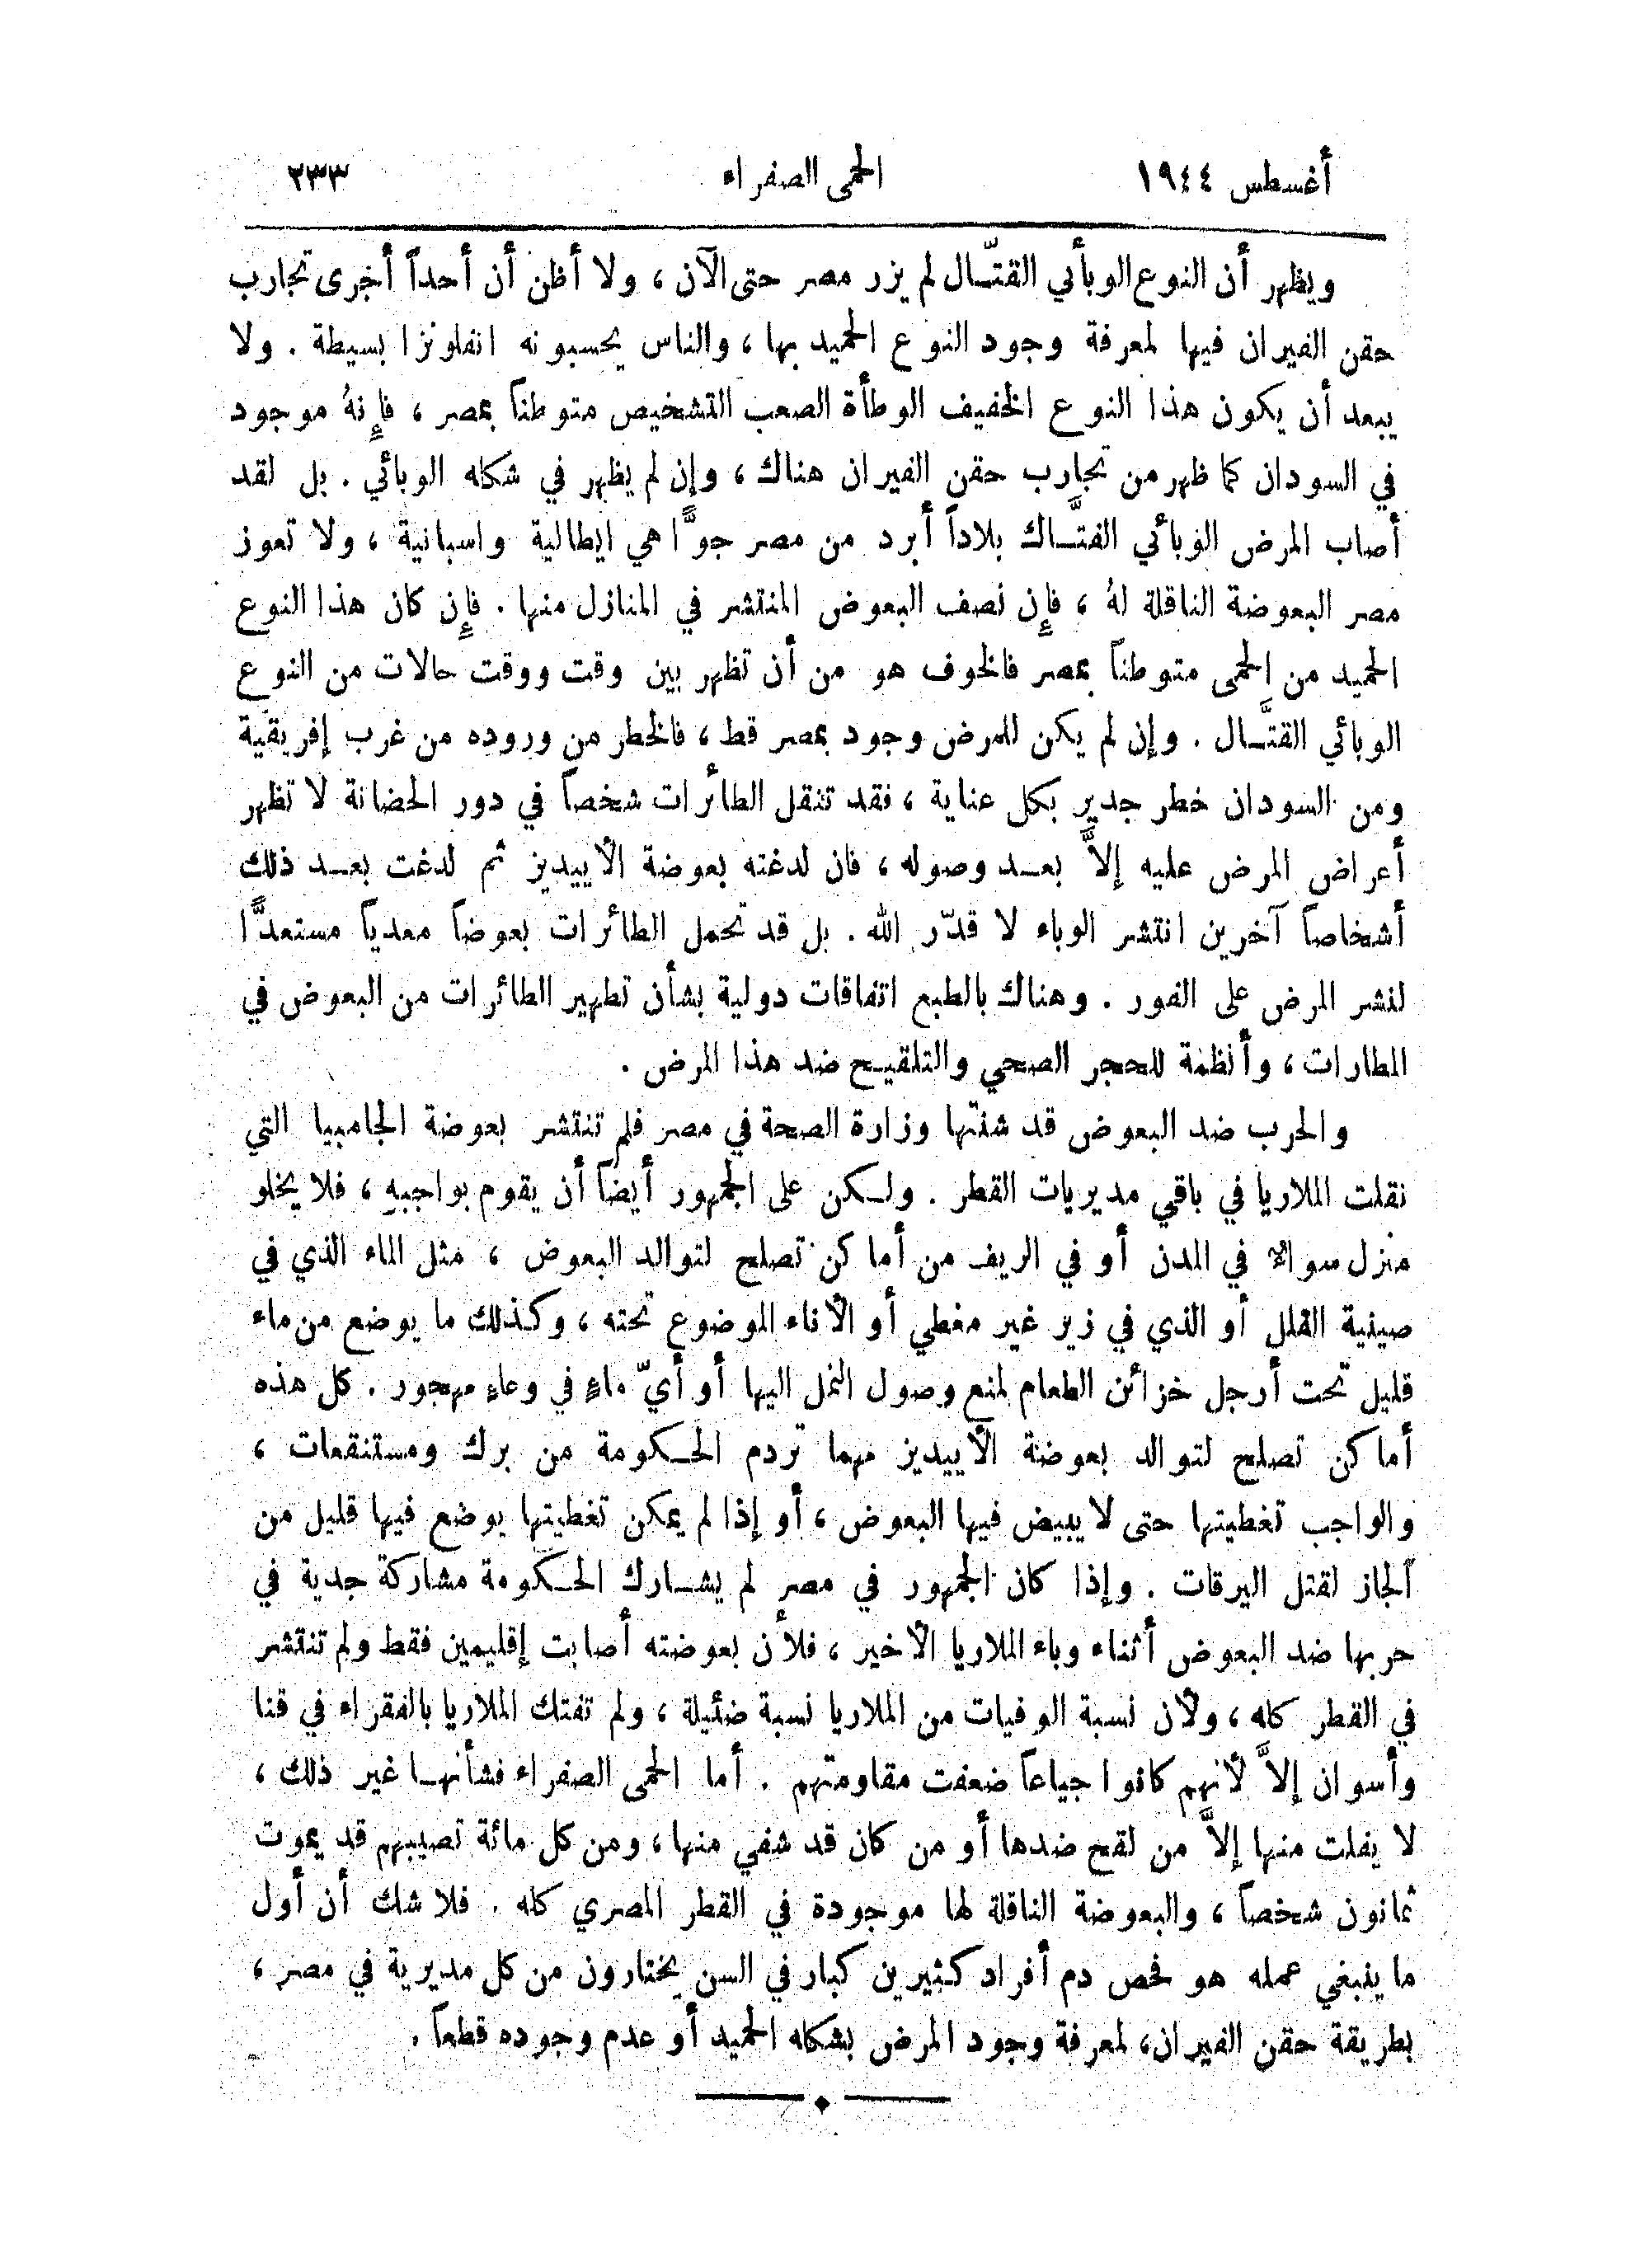 أغسطس ١٩٤٤ الحمى الصفراء ٣٣٣
ويظهر أن النوع الوبأئي القتّـال لم يزر مصر حتى الآن ، ولا أظن أن أحداً أجرى تجارب
حقن الفيران فيها لمعرفة وجود النوع الحميد بها ، والناس يحسبونه انفلونزا بسيطة . ولا
يبعد أن يكون هذا النوع الخفيف الوطأة الصعب التشخيص متوطناً بمصر ، فإِنهُ موجود
في السودان كما ظهر من تجارب حقن الفيران هناك ، وإن لم يظهر في شكله الوبائي . بل لقد
أصاب المرض الوبائي الفتَّـاك بلاداً أبرد من مصر جوًّا هي ايطالية واسبانية ، ولا تعوز
مصر البعوضة الناقلة لهُ ، فإِن نصف البعوض المنتشر في المنازل منها . فإِن كان هذا النوع
الحميد من الحمى متوطناً بمصر فالخوف هو من أن تظهر بين وقت ووقت حالات من النوع
الوبائي القتَّـال . وإن لم يكن للمرض وجود بمصر قط ، فالخطر من وروده من غرب إفريقية
ومن السودان خطر جدير بكل عناية ، فقد تنقل الطائرات شخصاً في دور الحضانة لا تظهر
أعراض المرض عليه إلاَّ بعـد وصوله ، فان لدغته بعوضة الأييديز ثم لدغت بعـد ذلك
أشخاصاً آخرين انتشر الوباء لا قدّر الله . بل قد تحمل الطائرات بعوضاً معدياً مستعدًّا
لنشر المرض على الفور . وهناك بالطبع اتفاقات دولية بشأن تطهير الطائرات من البعوض في
المطارات ، وأنظمة للحجر الصحي والتلقيـح ضد هذا المرض .
والحرب ضد البعوض قد شنتها وزارة الصحة في مصر فلم تنتشر بعوضة الجامبيا التي
نقلت الملاريا في باقي مديريات القطر . ولـكن على الجمهور أيضاً أن يقوم بواجبهِ ، فلا يخلو
منزل سواء في المدن أو في الريف من أماكن تصلح لتوالد البعوض ، مثل الماء الذي في
صينية القلل أو الذي في زير غير مغطي أو الأناء الموضوع تحته ، وكذلك ما يوضع من ماء
قليل تحت أرجل خزائن الطعام لمنع وصول النمل اليها أو أيّ ماءٍ في وعاءٍ مهجور . كل هذه
أماكن تصلح لتوالد بعوضة الأييديز مهما تردم الحـكومة من برك ومستنقعات ،
والواجب تغطيتها حتى لا يبيض فيها البعوض ، أو إذا لم يمكن تغطيتها يوضع فيها قليل من
الجاز لقتل اليرقات . وإذا كان الجمهور في مصر لم يشـارك الحـكومة مشاركة جدية في
حربها ضد البعوض أثناء وباء الملاريا الأخير ، فلأن بعوضته أصابت إقليمين فقط ولم تنتشر
في القطر كله ، ولأن نسبة الوفيات من الملاريا نسبة ضئيلة ، ولم تفتك الملاريا بالفقراء في قنا
وأسوان إلاَّ لأنهم كانوا جياعاً ضعفت مقاومتهم . أما الحمى الصفراء فشأنهـا غير ذلك ،
لا يفلت منها إلاَّ من لقح ضدها أو من كان قد شفي منها ، ومن كل مائة تصيبهم قد يموت
ثمانون شخصاً ، والبعوضة الناقلة لها موجودة في القطر المصري كله . فلا شك أن أول
ما ينبغي عمله هو فحص دم أفراد كثيرين كبار في السن يختارون من كل مديرية في مصر ،
بطريقة حقن الفيران، لمعرفة وجود المرض بشكله الحميد أو عدم وجوده قطعاً .